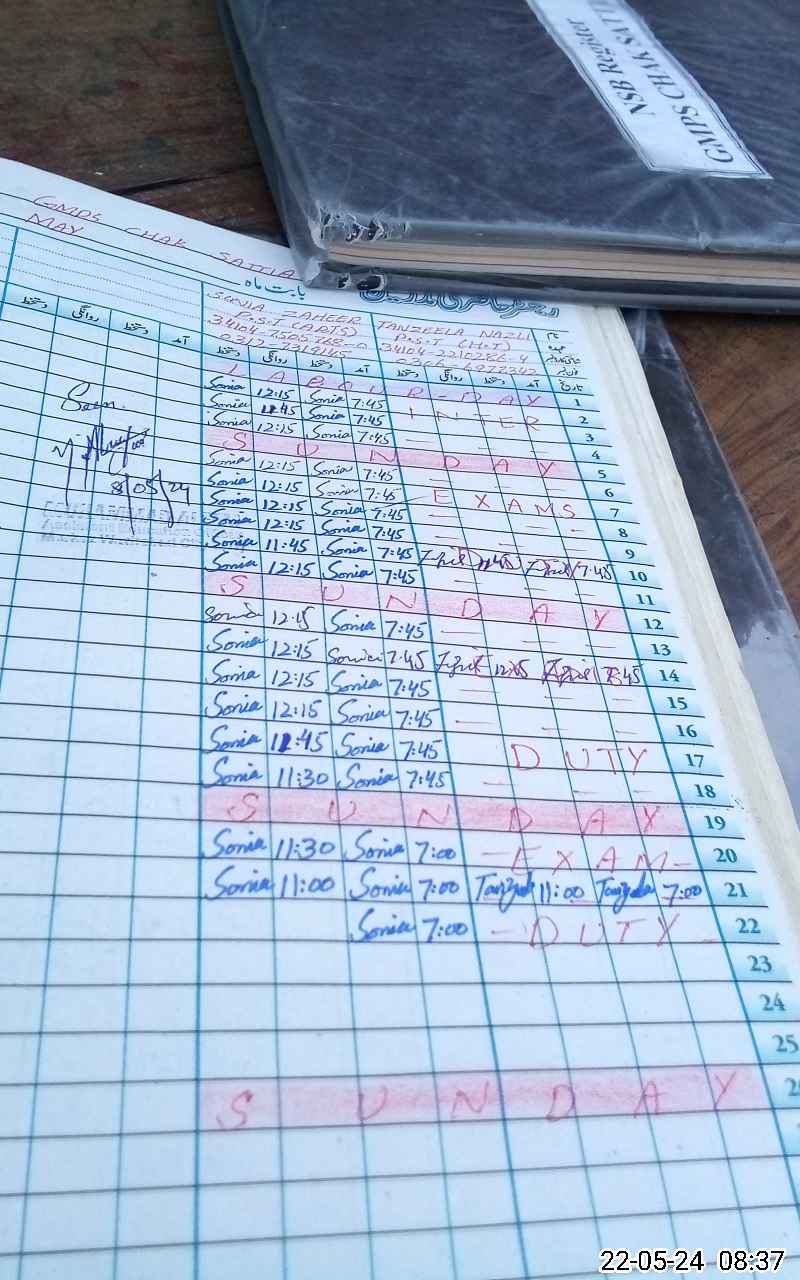 NSB Register
GMPS CHAK SATTIA
GMPS CHAK SATTIA
MAY
بابت ماہ
SONIA ZAHEER TANZEELA NAZLI نام
P.S.T (ADTS) P.S.T (H.T) عہدہ
34104-7505768-0 34104-2210286-4
دستخط روانگی دستخط آمد دستخط روانگی دستخط آمد دستخط روانگی دستخط آمد تاریخ
LABOUR-DAY 1
Sonia 12:15 Sonia 7:45 INTER 2
Sonia 11:45 Sonia 7:45 3
Sonia 12:15 Sonia 7:45 4
SUNDAY 5
Sonia 12:15 Sonia 7:45 6
Sonia 12:15 Sonia 7:45 EXAMS 7
Sonia 12:15 Sonia 7:45 8
Sonia 12:15 Sonia 7:45 9
Sonia 11:45 Sonia 7:45 11:45 7:45 10
Sonia 12:15 Sonia 7:45 11
SUNDAY 12
Sonia 12:15 Sonia 7:45 13
Sonia 12:15 Sonia 7:45 7:45 14
Sonia 12:15 Sonia 7:45 15
Sonia 12:15 Sonia 7:45 16
Sonia 11:45 Sonia 7:45 DUTY 17
Sonia 11:30 Sonia 7:45 18
SUNDAY 19
Sonia 11:30 Sonia 7:00 - EXAM - 20
Sonia 11:00 Sonia 7:00 Tanzeela 11:00 Tanzeela 7:00 21
Sonia 7:00 - DUTY - 22
23
24
25
SUNDAY
Seen.
8/05/24
22-05-24 08:37